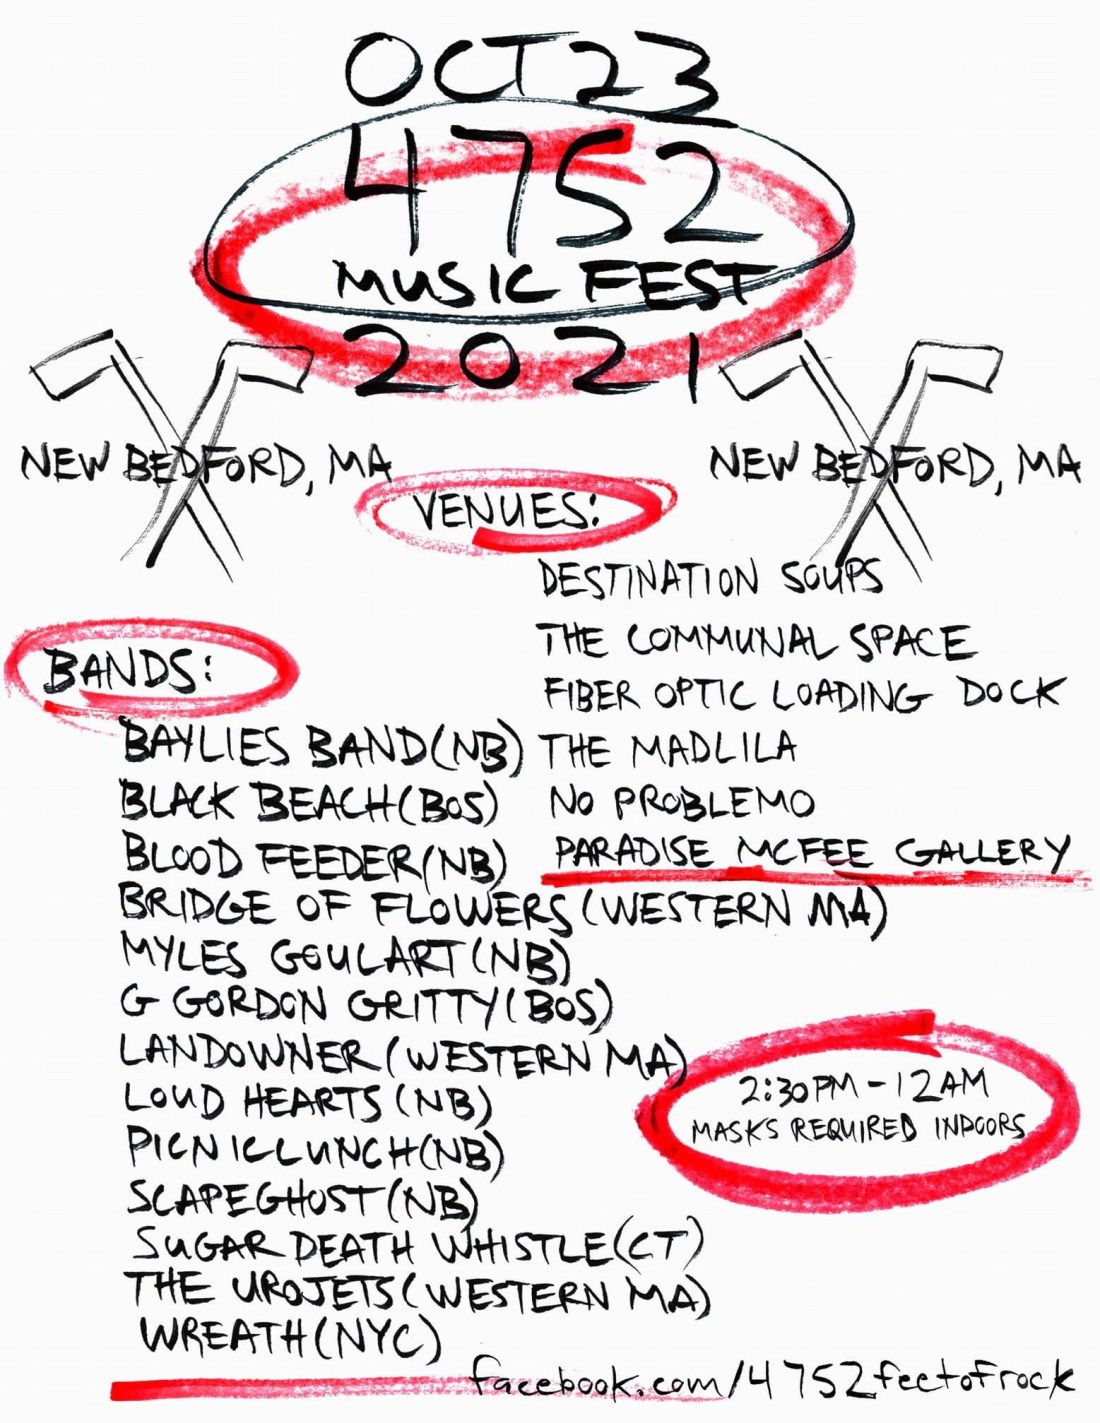 OCT 23
4752
MUSIC FEST
2021
NEW BEDFORD, MA
NEW BEDFORD, MA
VENUES:
DESTINATION SOUPS
THE COMMUNAL SPACE
FIBER OPTIC LOADING DOCK
THE MADLILA
NO PROBLEMO
PARADISE MCFEE GALLERY
BANDS:
BAYLIES BAND(NB)
BLACK BEACH(BOS)
BLOOD FEEDER(NB)
BRIDGE OF FLOWERS(WESTERN MA)
MYLES GOULART(NB)
G GORDON GRITTY(BOS)
LANDOWNER(WESTERN MA)
LOUD HEARTS(NB)
PICNICLUNCH(NB)
SCAPEGHOST(NB)
SUGAR DEATH WHISTLE(CT)
THE UROJETS(WESTERN MA)
WREATH(NYC)
2:30PM-12AM
MASKS REQUIRED INDOORS
facebook.com/4752feetofrock